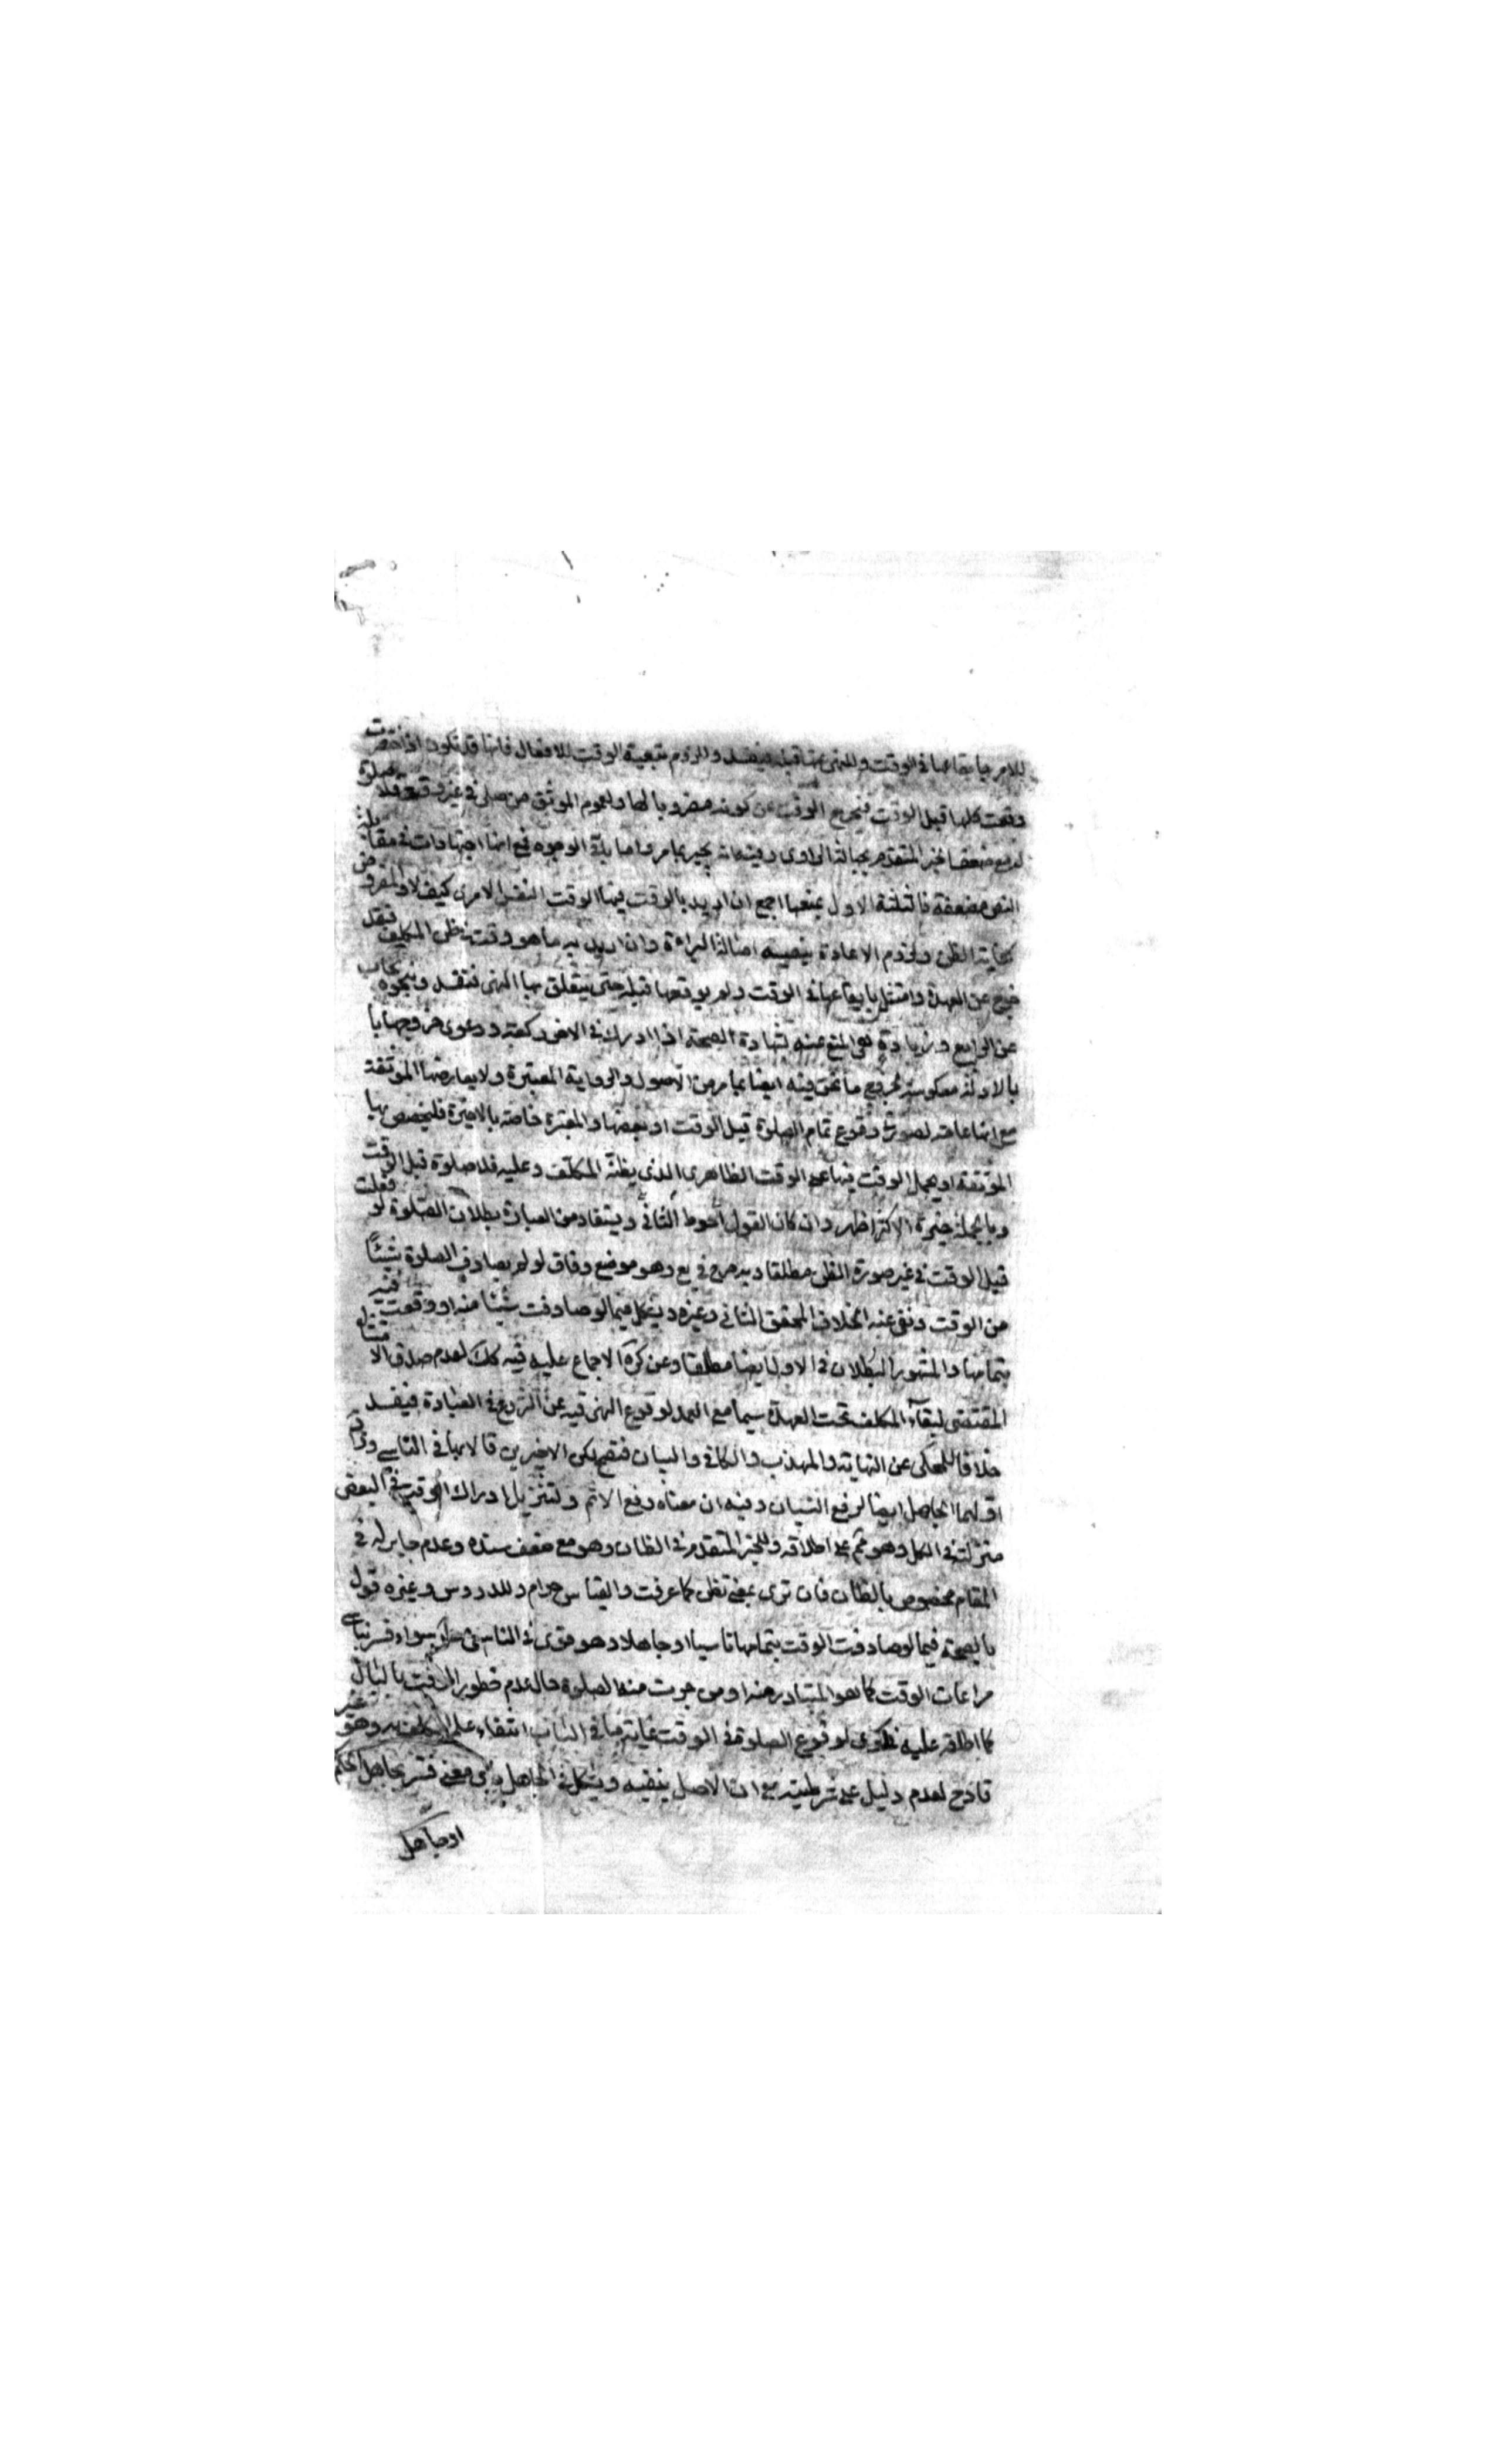 للامر بايقاعها في الوقت وللنهي عنها قبله فيفسد وللزوم تبعية الوقت للافعال فانها قد تكون اذا قصرت
وقعت كلها قبل الوقت فيخرج الوقت عن كونه مضروبا لها ولعموم الموثق من صلى في غير وقت فلا صلوة له
لدفع ضعف الخبر المتقدم بجهالة الراوي وفيه انه يجبر بما مر واما بقية الوجوه فمع انها اجتهادات في مقابلة
النص مضعفة فالثلثة الاول بمنعها اجمع ان اريد بالوقت فيها الوقت النفس الامري كيف لا والمفروض
كفاية الظن ولزوم الاعادة ينفيه اصالة البراءة وان اريد به ما هو وقت بظن المكلف فقد
خرج عن العهدة وامتثل بايقاعها في الوقت ولم يوقعها قبله حتى يتعلق بها النهي فتفسد وبنحوه يجاب
عن الرابع وزيادة هي المنع عنه لشهادة الصحة اذا ادرك في الاخر ركعة ودعوى خروجها با
بالادلة معكوسة بخروج ما نحن فيه ايضا بما مر من الاصول والرواية المعتبرة ولا يعارضها الموثقة
مع انها عامة لصورتي وقوع تمام الصلوة قبل الوقت او بعضها والمعتبرة خاصة بالاخيرة فليخصص بها
الموثقة او يحمل الوقت فيها على الوقت الظاهري الذي يظنه المكلف وعليه فلا صلوة قبل الوقت
وبالجملة خيرة الاكثر اظهر وان كان القول احوط الثاني ويستفاد من العبارة بطلان الصلوة لو فعلت
قبل الوقت في غير صورة الظن مطلقا وبه صرح في يع وهو موضع وفاق لو لم يصادف الصلوة شيئاً
من الوقت ونفى عنه الخلاف المحقق الثاني وغيره ويشكل فيما لو صادفت شيئا منه او وقعت فيه
بتمامها والمشهور البطلان في الاول ايضا مطلقا وعن كره الاجماع عليه فيه كك لعدم صدق الامتثال
المقتضي لبقاء المكلف تحت العهدة سيما مع العمد لوقوع النهي فيه عن الشروع في العبادة فيفسد
خلافا للمحكى عن النهاية والمهذب والكافي والبيان فتصح لكن الاخيرين قالا بها في الناسي وفي
اولهما الجاهل ايضا لرفع النسيان وفيه ان معناه رفع الاثم ولتنزيل ادراك الوقت في البعض
منزلته في الكل وهو مم على اطلاقه وللخبر المتقدم في الظان وهو مع ضعف سنده وعدم جابر له في
المقام مخصوص بالظان فان ترى بمعنى تظن كما عرفت والقياس حرام وللدروس وغيره قول
بالصحة فيما لو صادفت الوقت بتمامها ناسيا او جاهلا وهو قوي في الناسي سواء فسر بناسي
مراعات الوقت كما هو المتبادر منه او من جرت منه الصلوة حال عدم خطور الوقت بالبال
كما اطلقه عليه في كرى لوقوع الصلوة في الوقت غاية ما في الباب انتفاء علم المكلف به وهو غير
قادح لعدم دليل على شرطيته مع ان الاصل ينفيه ويشكل في الجاهل باي معنى فسر بجاهل الحكم
او جاهل